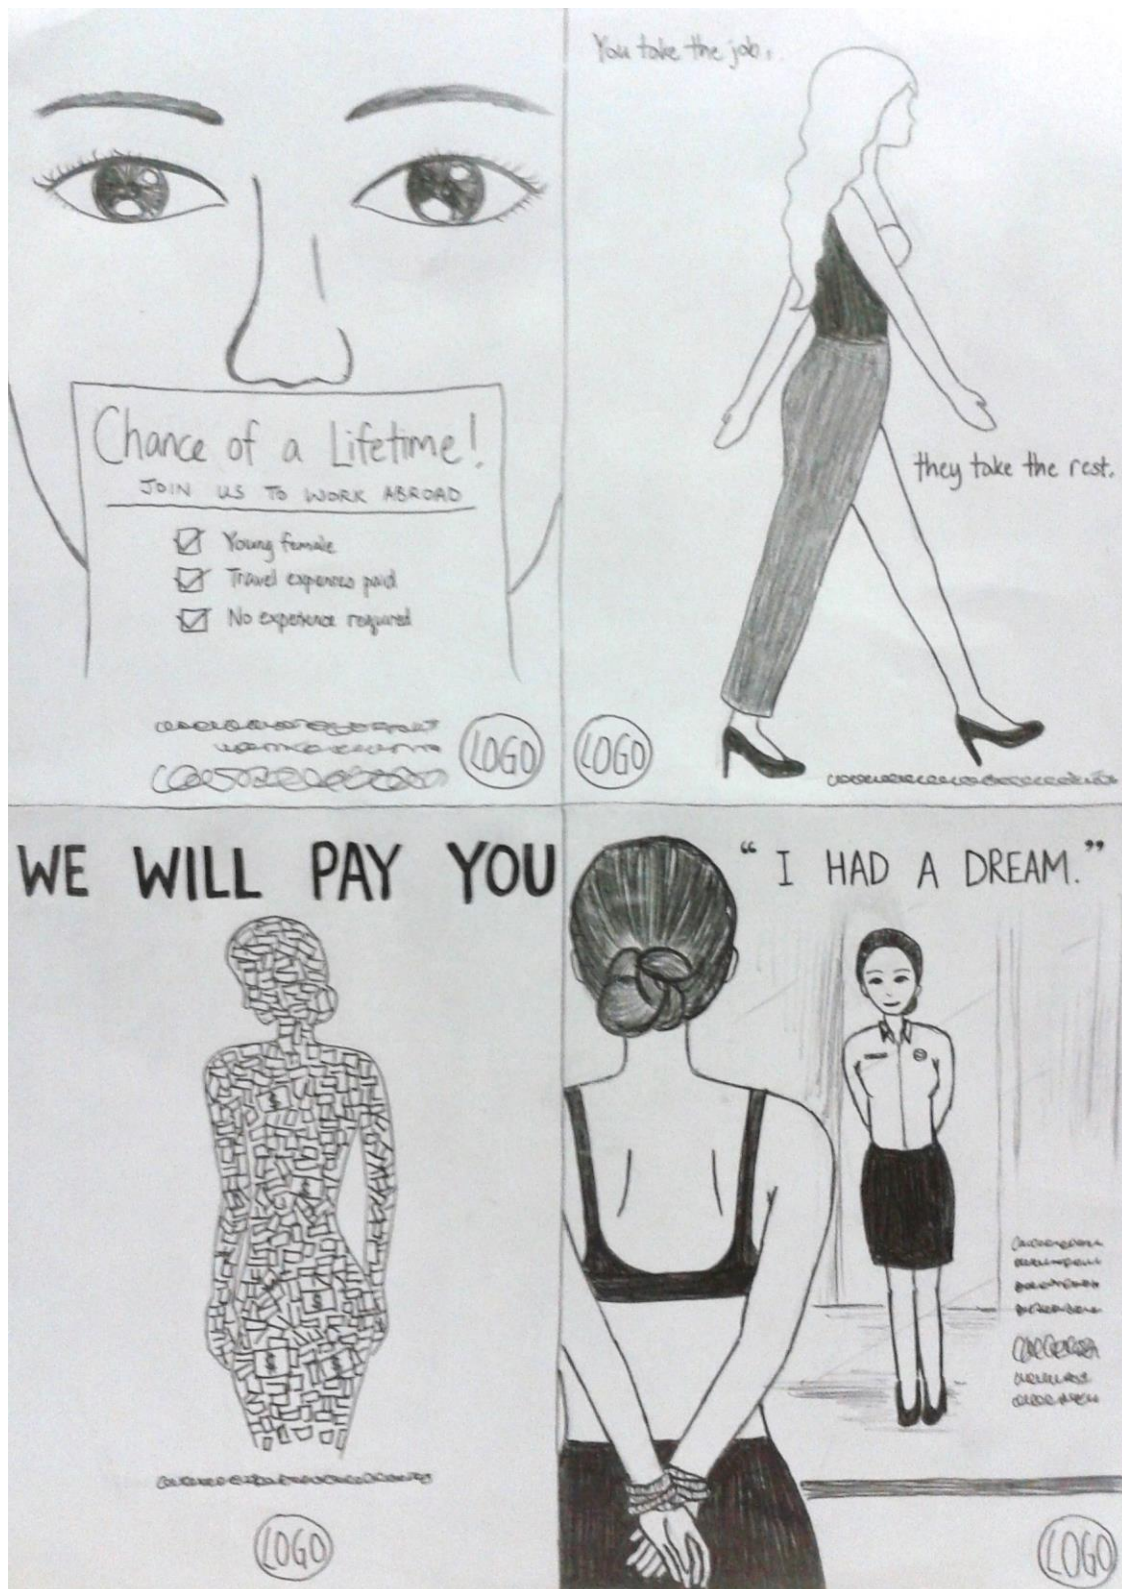 Chance of a Lifetime!
JOIN US TO WORK ABROAD
Young female
Travel expenses paid
No experience required
LOGO
You take the job,
they take the rest.
LOGO
WE WILL PAY YOU
LOGO
"I HAD A DREAM."
LOGO